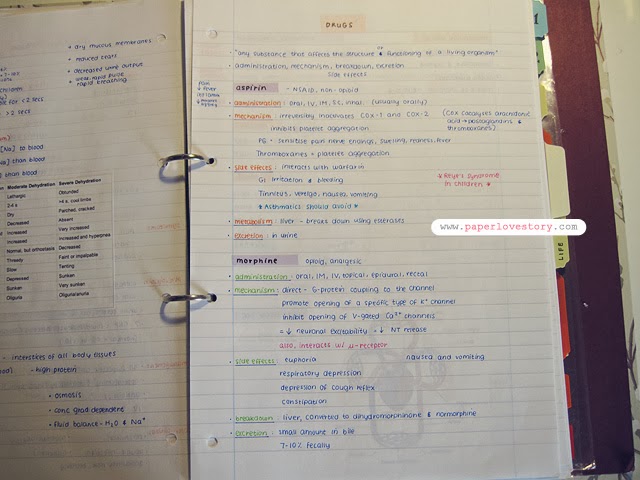 + dry mucous membranes
+ reduced tears
+ decreased urine output
+ weak rapid pulse
rapid breathing
for <2 secs
> 2 secs
[Na] to blood
[Na] than blood
than blood
Moderate Dehydration Severe Dehydration
Lethargic Obtunded
2-4 s >4 s, cool limbs
Dry Parched, cracked
Decreased Absent
Increased Very increased
Increased Increased and hyperpnea
Normal, but orthostasis Decreased
Thready Faint or impalpable
Slow Tenting
Depressed Sunken
Sunken Very sunken
Oliguria Oliguria/anuria
- interstices of all body tissues
- high protein
• osmosis
• conc grad dependent
• fluid balance - H₂O & Na⁺
DRUGS
• "any substance that affects the structure or functioning of a living organism"
• administration, mechanism, breakdown, excretion
side effects
pain
↓ fever
aspirin - NSAID, non-opioid
• administration: oral, IV, IM, SC, inhal (usually orally)
• mechanism: irreversibly inactivates COX-1 and COX-2 (COX catalyzes arachidonic
acid → prostaglandins &
thromboxanes)
inhibits platelet aggregation
PG - sensitise pain nerve endings, swelling, redness, fever
Thromboxanes = platelet aggregation
• side effects: interacts with warfarin
GI irritation & bleeding
Tinnitus, vertigo, nausea, vomiting
* Asthmatics should avoid *
* Reye's syndrome
in children *
• metabolism: liver - breaks down using esterases
• excretion: in urine
www.paperlovestory.com
LIFE
morphine opioid, analgesic
• administration: oral, IM, IV, topical, epidural, rectal
• mechanism: direct - G-protein coupling to the channel
promote opening of a specific type of K⁺ channel
inhibit opening of V-gated Ca²⁺ channels
= ↓ neuronal excitability = ↓ NT release
also, interacts w/ μ-receptor
• side effects: euphoria nausea and vomiting
respiratory depression
depression of cough reflex
constipation
• breakdown: liver, converted to dihydromorphinone & normorphine
• excretion: small amount in bile
7-10% fecally